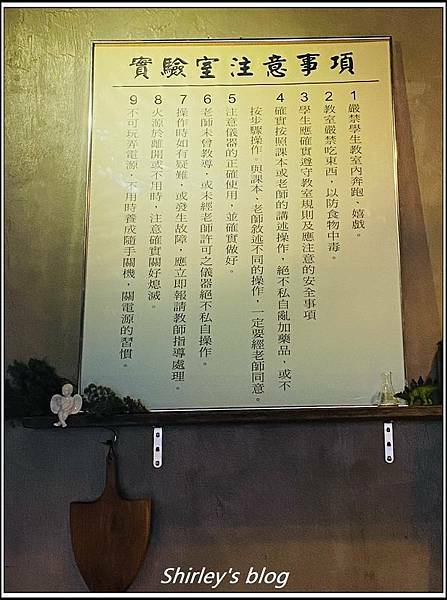 實驗室注意事項
1 嚴禁學生教室內奔跑、嬉戲。
2 教室嚴禁吃東西，以防食物中毒。
3 學生應確實遵守教室規則及應注意的安全事項
4 確實按照課本或老師的講述操作，絕不私自亂加藥品，或不
按步驟操作。與課本、老師敘述不同的操作，一定要經老師同意。
5 注意儀器的正確使用，並確實做好。
6 老師未曾教導，或未經老師許可之儀器絕不私自操作。
7 操作時如有疑難，或發生故障，應立即報請教師指導處理。
8 火源於離開或不用時，注意確實關好熄滅。
9 不可玩弄電源，不用時養成隨手關機，關電源的習慣。
Shirley's blog